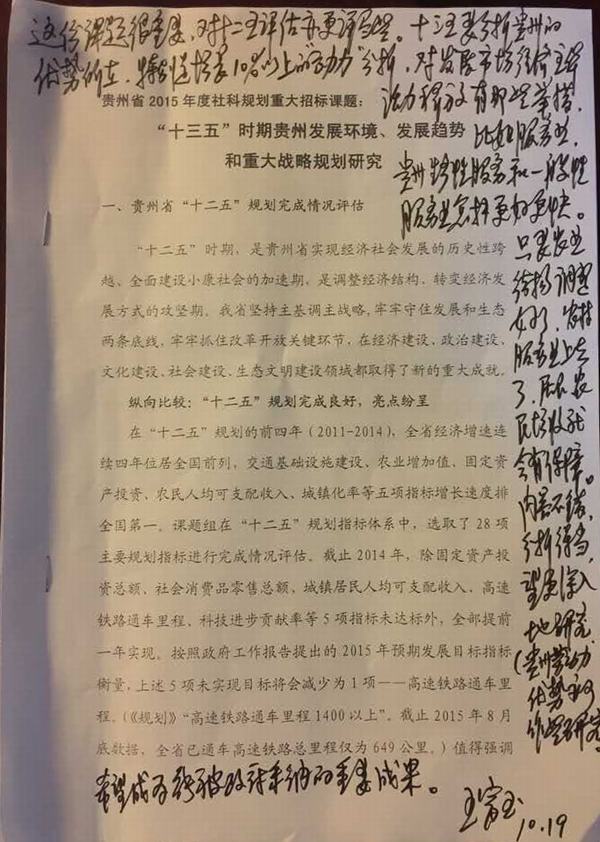 这份课题很重要，对十二五评估亦更详尽些。十三五要分析贵州的
优势所在，特别是增长10%以上的"动力"分析，对发挥市场经济主体
活力释放有那些举措，
比如服务业，
贵州特性服务和一般性
服务业怎样更好更快。
只要农业
结构调整
好了，农村
服务业上去
了，居农
民增收就
会有保障。
内容不错，
分析得当，
望更深入
地研究。
（贵州劳动力
优势亦可
作些研究）
希望成为能被政府采纳的重要成果。
王富玉
10.19
贵州省 2015 年度社科规划重大招标课题：
“十三五”时期贵州发展环境、发展趋势
和重大战略规划研究
一、贵州省“十二五”规划完成情况评估
“十二五”时期，是贵州省实现经济社会发展的历史性跨
越、全面建设小康社会的加速期，是调整经济结构、转变经济发
展方式的攻坚期。我省坚持主基调主战略，牢牢守住发展和生态
两条底线，牢牢抓住改革开放关键环节，在经济建设、政治建设、
文化建设、社会建设、生态文明建设领域都取得了新的重大成就。
纵向比较：“十二五”规划完成良好，亮点纷呈
在“十二五”规划的前四年（2011-2014），全省经济增速连
续四年位居全国前列，交通基础设施建设、农业增加值、固定资
产投资、农民人均可支配收入、城镇化率等五项指标增长速度排
全国第一。课题组在“十二五”规划指标体系中，选取了 28 项
主要规划指标进行完成情况评估。截止 2014 年，除固定资产投
资总额、社会消费品零售总额、城镇居民人均可支配收入、高速
铁路通车里程、科技进步贡献率等 5 项指标未达标外，全部提前
一年实现。按照政府工作报告提出的 2015 年预期发展目标指标
衡量，上述 5 项未实现目标将会减少为 1 项——高速铁路通车里
程。（《规划》“高速铁路通车里程 1400 以上”。截止 2015 年 8 月
底数据，全省已通车高速铁路总里程仅为 649 公里。）值得强调